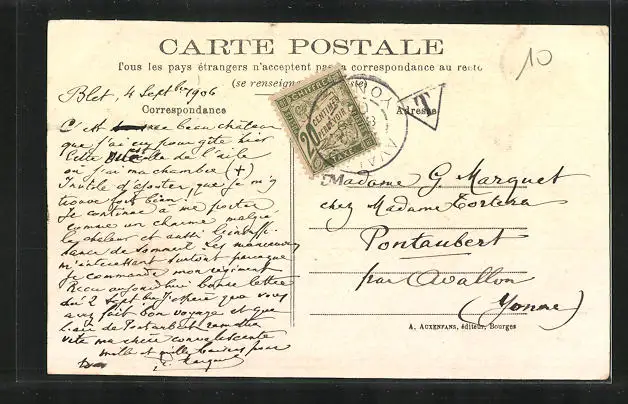 10
CARTE POSTALE
Tous les pays étrangers n'acceptent pas la correspondance au recto
(se renseigner
Blet, 4 Septbre 1906
Correspondance
Adresse
T
CHIFFRE
20
CENTIMES
À PERCEVOIR
TAXE
C'est beau château
que j'ai eu pour gîte hier
Cette de l'aile
où j'ai ma chambre (+)
Inutile d'ajouter que je m'y
trouve fort bien
Je continue à me porter
comme un charme malgré
la chaleur et aussi l'insuffi-
sance de sommeil Les manœuvres
m'intéressent surtout parce que
je commande mon régiment
Reçu aujourd'hui bonne lettre
du 2 Sept que vous
avez fait bon voyage et que
l'air de Pontaubert
vite ma chère convalescente
mille et mille baisers pour
G. Marquet
Madame G. Marquet
chez Madame
Pontaubert
par Avallon
(Yonne)
A. AUXENFANS, éditeur, Bourges